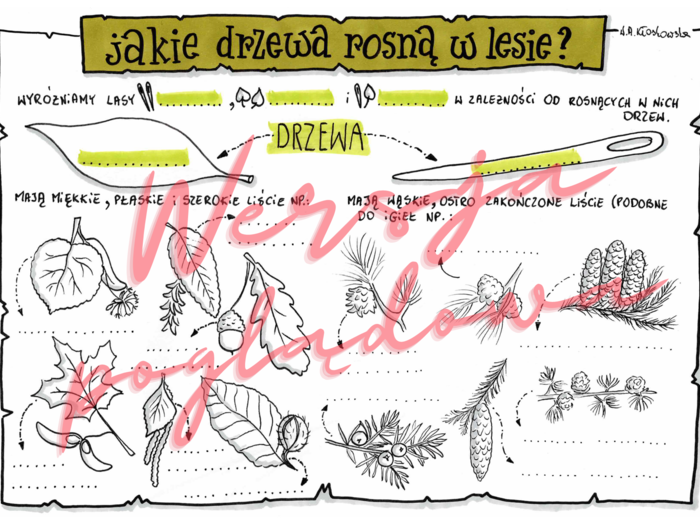 jakie drzewa rosną w lesie?
A.A.Kłoskowska
WYRÓŻNIAMY LASY , i W ZALEŻNOŚCI OD ROSNĄCYCH W NICH
DRZEW.
DRZEWA
MAJĄ MIĘKKIE, PŁASKIE i SZEROKIE LIŚCIE NP.:
MAJĄ WĄSKIE, OSTRO ZAKOŃCZONE LIŚCIE (PODOBNE
DO iGIEŁ NP.:
Wersja
poglądowa